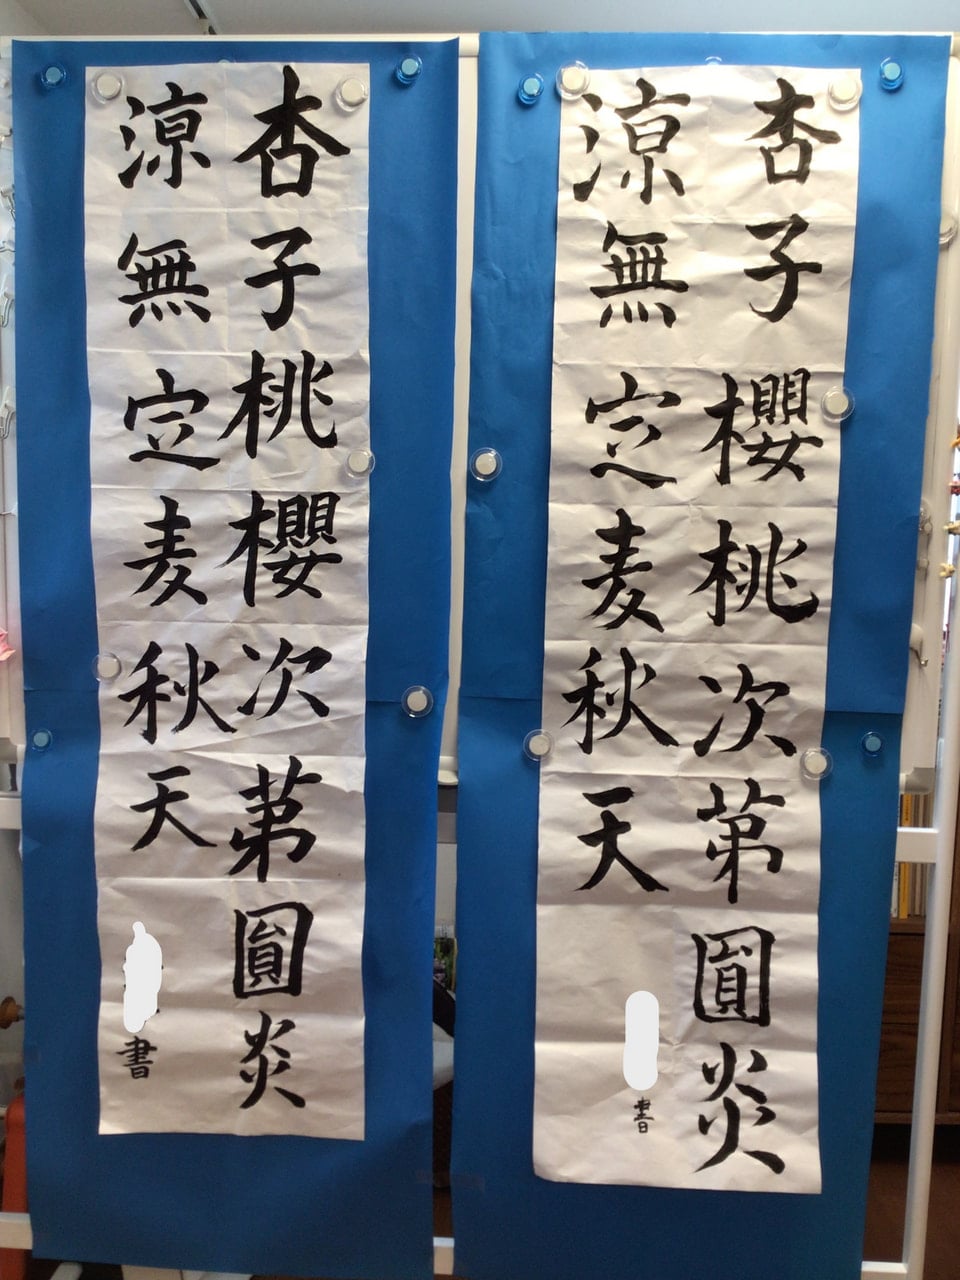 杏子櫻桃次第圓炎
涼無定麦秋天
書
杏子桃櫻次第圓炎
涼無定麦秋天
書